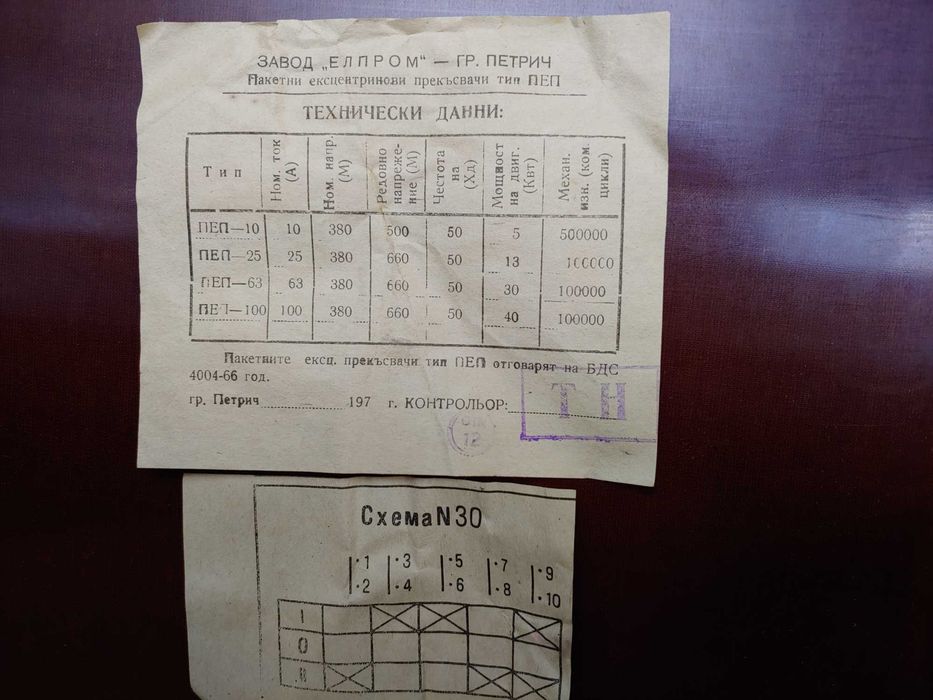 ЗАВОД „ЕЛПРОМ“ — ГР. ПЕТРИЧ
Пакетни ексцентринови прекъсвачи тип ПЕП
ТЕХНИЧЕСКИ ДАННИ:
Тип Ном. ток (А) Ном. напр. (М) Редовно напрежение (М) Честота на (Хд) Мощност на двиг. (Квт) Механ. изн. (ком. цикли)
ПЕП—10 10 380 500 50 5 500000
ПЕП—25 25 380 660 50 13 100000
ПЕП—63 63 380 660 50 30 100000
ПЕП—100 100 380 660 50 40 100000
Пакетните ексц. прекъсвачи тип ПЕП отговарят на БДС
4004-66 год.
гр. Петрич 197 г. КОНТРОЛЬОР:
ТН
12
Схема N 30
·1 ·3 ·5 ·7 ·9
·2 ·4 ·6 ·8 ·10
I
0
II